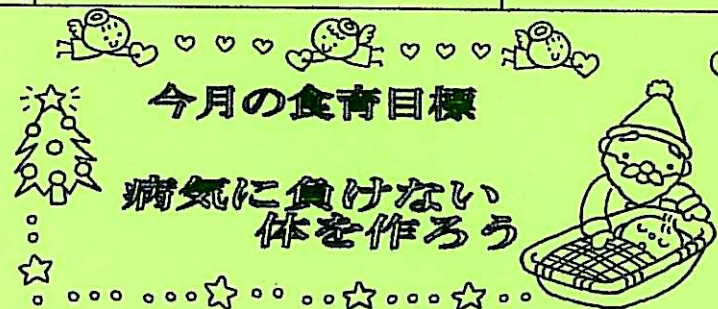 今月の食育目標
病気に負けない
体を作ろう